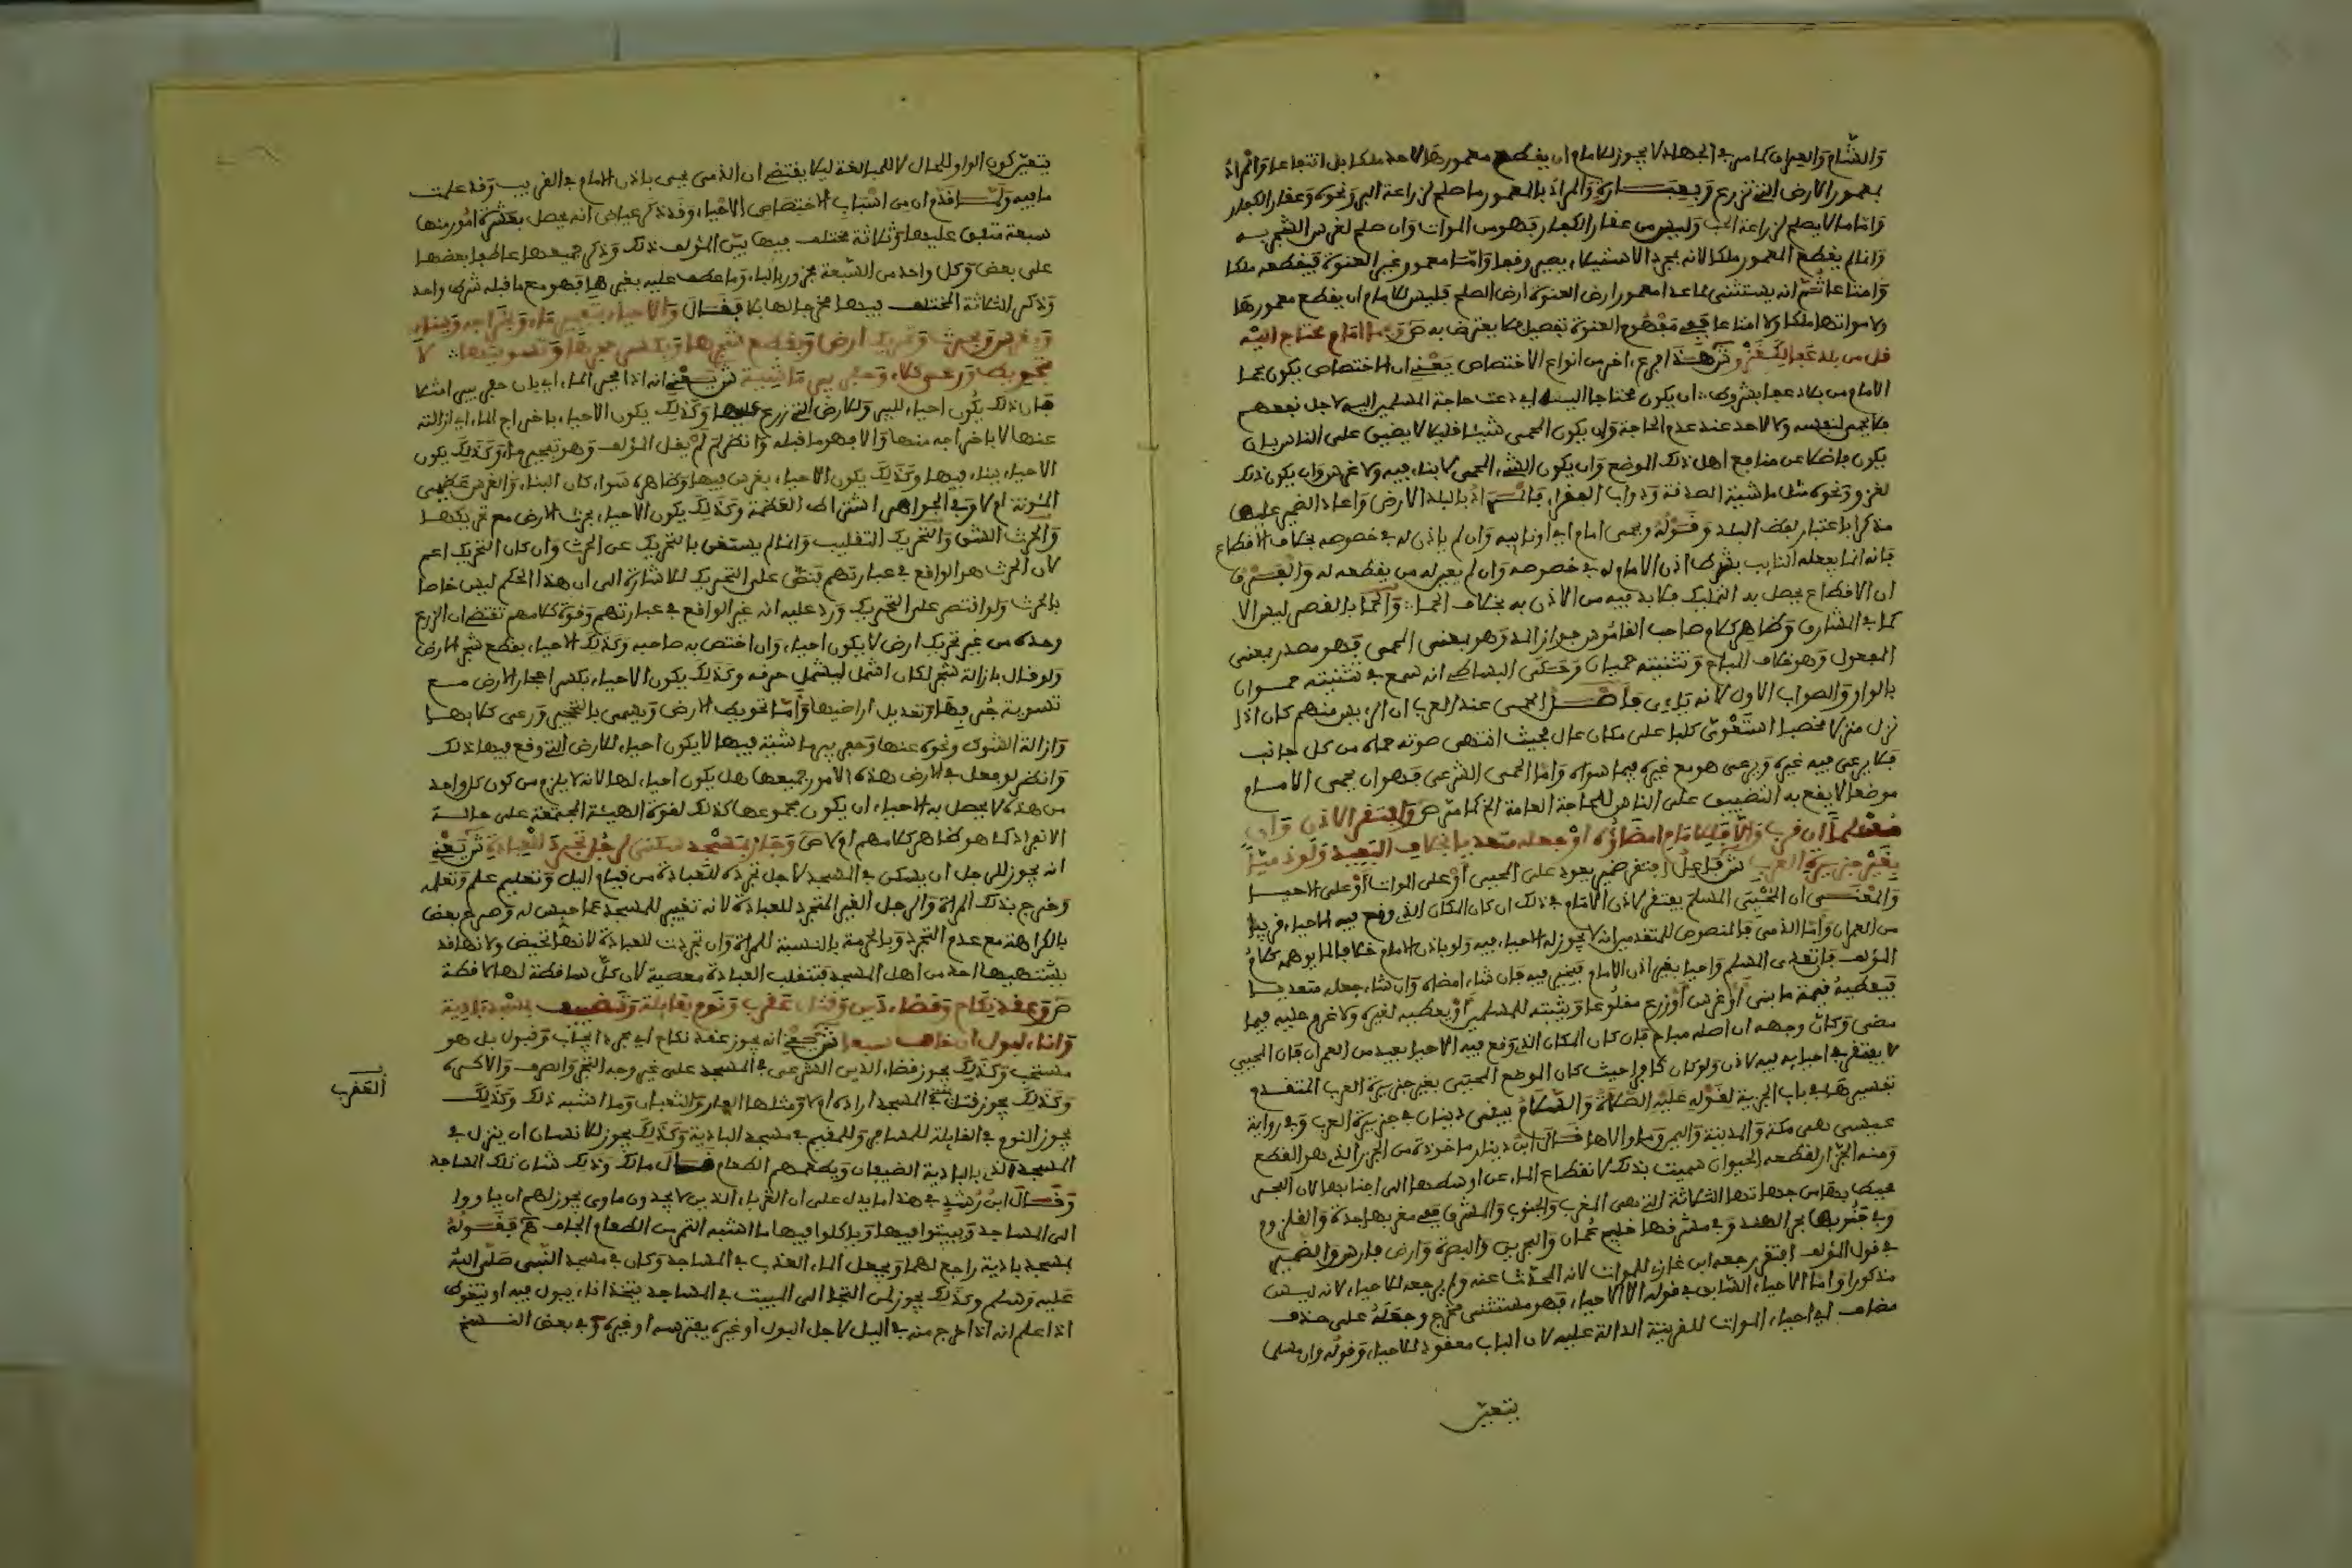 والشام والعراق كما مر في الجهاد لا يجوز للامام ان يقطع معمورها لاحد ملكا بل انتفاعا والمراد
بمعمور الارض التي تزرع وبعبارة والمراد بالمعمور ما صلح لزراعة البر ونحوه وعقار الكفار
واما ما لا يصلح لزراعة الحب وليس من عقار الكفار فهو من الموات وان صلح لغرس الشجر به
وانما لم يقطع المعمور ملكا لانه بمجرد الاستيلاء يصير وقفا واما معمور غير العنوة فيقطعه ملكا
وامتاعا ثم انه يستثنى مما عدا معمور ارض العنوة ارض الصلح فليس للامام ان يقطع معمورها
ولا مواتها ملكا ولا امتاعا ففي مفهوم العنوة تفصيل فلا يعترض به ص وبحما امام محتاج اليه
قل من بلد عفا لكغزو ش هذا نوع اخر من انواع الاختصاص يعني ان الاختصاص يكون بحما
الامام من بلاد عفا بشروط ان يكون محتاجا اليه اي دعت حاجة المسلمين اليه لاجل نفعهم
فلا يحمي لنفسه ولا لاحد عند عدم الحاجة وان يكون الحمى شيئا قليلا لا يضيق على الناس بان
يكون فاضلا عن منافع اهل ذلك الموضع وان يكون الشيء المحمى لا بناء فيه ولا غرس وان يكون ذلك
لغزو ونحوه مثل ماشية الصدقة ودواب الفقراء فالمراد بالبلد الارض واعاد الضمير عليها
مذكرا باعتبار لفظ البلد وقوله وبحمى امام اي او نايبه وان لم ياذن له في خصوصه بخلاف الاقطاع
فانه انما يفعله النايب بشرط اذن الامام له في خصوصه وان لم يعين له من يقطعه له والفرق
ان الاقطاع يحصل به التمليك فلا بد فيه من الاذن به بخلاف الحما والحما بالقصر ليس الا
كما في المشارق وظاهر كلام صاحب القاموس جواز المد وهو بمعنى المحمى فهو مصدر بمعنى
المفعول وهو خلاف المباح وتثنيته حميان وحكى البساطي انه سمع في تثنيته حموان
بالواو والصواب الاول لانه ياءي فاصل الحمى عند العرب ان الرييس منهم كان اذا
نزل منزلا مخصبا استعوى كلبا على مكان عال فحيث انتهى صوته حماه من كل جانب
فلا يرعى فيه غيره ويرعى هو مع غيره فيما سواه واما الحمى الشرعي فهو ان يحمي الامام
موضعا لا يقع به التضييق على الناس للحاجة العامة الخ كما مر ص وافتقر لاذن وان
مسلما ان قرب والا فللامام امضاؤه او جعله متعديا بخلاف البعيد ولو ذميا
بغير جزيرة العرب ش فاعل افتقر ضمير يعود على المحيي او على الموات او على الاحيا
والمعنى ان المحيي المسلم يفتقر لاذن الامام في ذلك ان كان المكان الذي وقع فيه الاحياء قريبا
من العمران واما الذمي فالمنصوص للمتقدمين انه لا يجوز له الاحياء فيه ولو باذن الامام خلافا لما يوهمه كلام
المؤلف فان تعدى المسلم واحيا بغير اذن الامام فيخير فيه فان شاء امضاه وان شاء جعله متعديا
فيعطيه قيمة ما بنى او غرس او زرع مقلوعا ويبقيه للمسلمين او يعطيه لغيره ولا غرم عليه فيما
مضى وكان وجهه ان اصله مباح فان كان المكان الذي وقع فيه الاحيا بعيد من العمران فان المحيي
لا يفتقر في احيايه فيه لاذن ولو كان كافرا حيث كان الموضع المحيى بغير جزيرة العرب المتقدم
تفسيرها في باب الجزية لقوله عليه الصلاة والسلام لا يبقى دينان في جزيرة العرب وفي رواية
عيسى هي مكة والمدينة واليمن وما والاها قال ابن دينار ماخوذة من الجزر الذي هو القطع
ومنه الجزار لقطعه الحيوان سميت بذلك لانقطاع الماء عن اوسطها الى اجنابها لان البحر
محيط بها من جهاتها الثلاثة التي هي المغرب والجنوب والمشرق ففي مغربها جدة والقلزوم
وفي جنوبها بحر الهند وفي مشرقها خليج عمان والبحرين والبصرة وارض فارس والضمير
في قول المؤلف افتقر رجعه ابن غازي للموات لانه المحدث عنه ولم يرجعه للاحياء لانه ليس
مذكورا واما الاحياء السابق في قوله الا الاحياء فهو مستثنى مخرج وجعله على حذف
مضاف اي احياء الموات للقرينة الدالة عليه لان الباب معقود للاحياء وقوله وان مسلما
يتعين
يتعين كون الواو للحال لا للمبالغة ليلا يقتضي ان الذمي يحيي باذن الامام في القريب وقد علمت
ما فيه ولما قدم ان من اسباب الاختصاص الاحياء وقد ذكر عياض انه يحصل بعشرة امور منها
سبعة متفق عليها وثلاثة مختلف فيها بين المؤلف ذلك وذكر جميعها عاطفا بعضها
على بعض وكل واحد من السبعة مجرور بالباء وما عطف عليه بغيرها فهو مع ما قبله شيء واحد
وذكر الثلاثة المختلف فيها مخرجا لها بلا فقال والاحياء بتفجير ماء وباخراجه وببناء
وبغرس وبحرث وتحريك ارض وبقطع شجرها وبكسر حجرها وتسويتها لا
بتحويط ورعي كلاء وحفر بير ماشية ش يعني انه اذا فجر الماء اي بان حفر بيرا مثلا
فان ذلك يكون احياء للبير وللارض التي تزرع عليها وكذلك يكون الاحياء باخراج الماء اي ازالته
عنها لا باخراجه منها والا فهو ما قبله وانظر لم لم يقل المؤلف وهو تفجير ماء وكذلك يكون
الاحياء ببناء فيها وكذلك يكون الاحياء بغرس فيها وظاهره سواء كان البناء والغرس عظيمي
المئونة ام لا وفي الجواهر اشتراط العظمة وكذلك يكون الاحياء بحرث الارض مع تحريكها
والحرث الشق والتحريك التقليب وانما لم يستغن بالتحريك عن الحرث وان كان التحريك اعم
لان الحرث هو الواقع في عبارتهم فنص على التحريك للاشارة الى ان هذا الحكم ليس خاصا
بالحرث ولو اقتصر على التحريك ورد عليه انه غير الواقع في عبارتهم وقوة كلامهم تقتضي ان الزرع
وحده من غير تحريك ارض لا يكون احياء وان اختص به صاحبه وكذلك الاحياء بقطع شجر الارض
ولو قال بازالة شجر لكان اشمل ليشمل حرقه وكذلك يكون الاحياء بكسر احجار الارض مع
تسوية حفرها وتعديل اراضيها واما تحويط الارض ويسمى بالتحجير ورعي كلابها
وازالة الشوك ونحوه عنها وحفر بير ماشية فيها لا يكون احياء للارض التي وقع فيها ذلك
وانظر لو فعل في الارض هذه الامور جميعها هل يكون احياء لها لانه لا يلزم من كون كل واحد
من هذه لا يحصل به الاحياء ان يكون مجموعها كذلك لقوة الهيئة المجتمعة على حالة
الانفراد كما هو ظاهر كلامهم ام لا ص وجاز بمسجد سكنى لرجل تجرد للعبادة ش يعني
انه يجوز للرجل ان يسكن في المسجد لاجل تجرده للعبادة من قيام الليل وتعليم علم وتعلمه
وخرج بذلك المراة والرجل الغير المتجرد للعبادة لانه تغيير للمسجد عما حبس له وصرح بعض
بالكراهة مع عدم التجرد وبالحرمة بالنسبة للمراة وان تجردت للعبادة لانها تحيض ولانها قد
يشتهيها احد من اهل المسجد فتنقلب العبادة معصية لان كل ساقطة لها لاقطة
ص وعقد نكاح وقضاء دين وقتل عقرب ونوم بقايلة وتضييف بمسجد بادية
واناء لبول ان خاف سبعا ش يعني انه يجوز عقد نكاح اي مجرد ايجاب وقبول بل هو
مستحب وكذلك يجوز قضاء الدين الشرعي في المسجد على غير وجه التجر والصرف والا كره
وكذلك يجوز قتل في المسجد ارادته ام لا ومثلها الفار والثعبان وما اشبه ذلك وكذلك
يجوز النوم في القايلة للمسافر وللمقيم في مسجد البادية وكذلك يجوز للانسان ان ينزل في
المسجد الذي بالبادية الضيفان ويطعمهم الطعام قال مالك وذلك شان تلك المساجد
وقال ابن رشد في هذا ما يدل على ان الغرباء الذين لا يجدون ماوى يجوز لهم ان ياووا
الى المساجد ويبيتوا فيها وياكلوا فيها ما اشبه التمر من الطعام الجاف هـ فقوله
بمسجد بادية راجع لهما ويجعل الماء العذب في المساجد وكان في مسجد النبي صلى الله
عليه وسلم وكذلك يجوز لمن التجا الى المبيت في المساجد يتخذ اناء يبول فيه او يتغوط
اذا علم انه اذا خرج منه في اليل لاجل البول او غيره يفترسه او غيره وفي بعض النسخ
العقرب